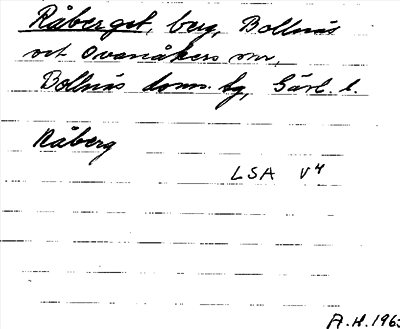 Råberget, berg, Bollnäs
och Ovanåkers snr,
Bollnäs doms. tg, Gävl. l.
Råberg
LSA V4
A.H. 1963